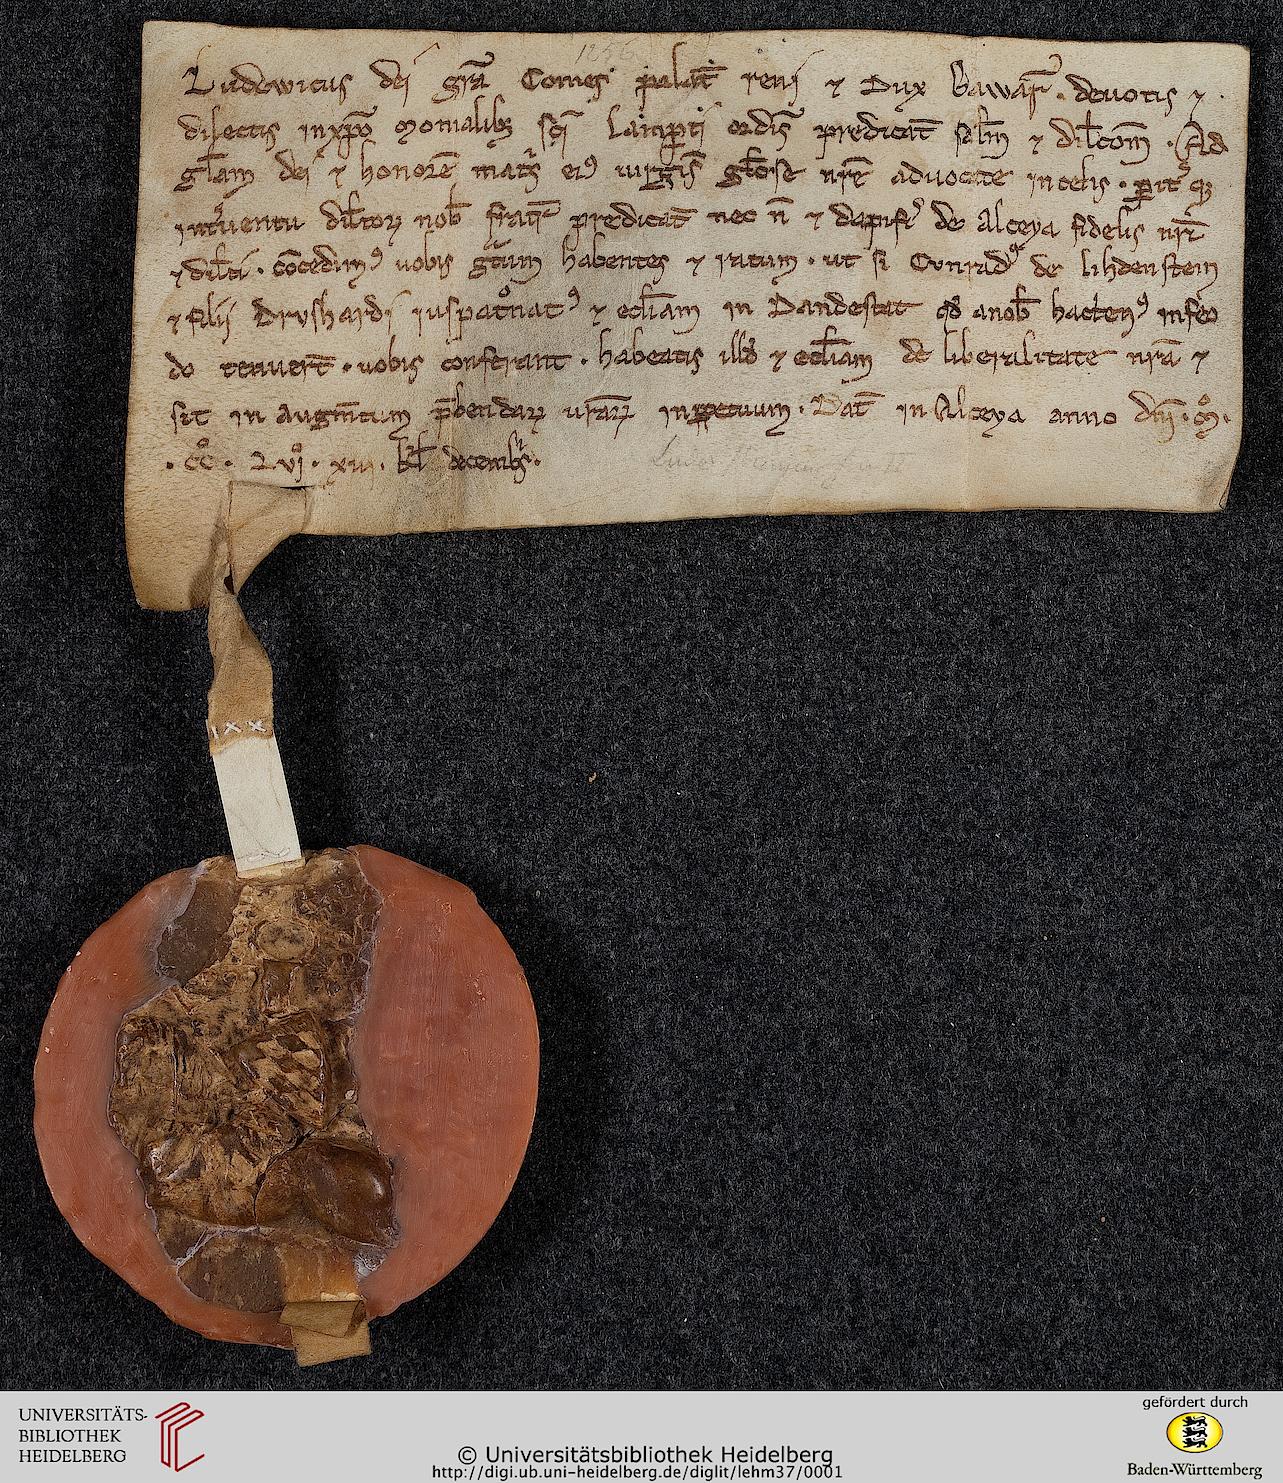 1256
Ludewicus dei gr̄a Comes palat̄ reni ⁊ Dux Bawar̄ . deuotis ⁊
dilectis in xp̄o Monialibꝫ sc̄i Lamp̱ti ordīs predicat̄ sal̄m ⁊ dil̄cōm . Ad
gl̄am dei ⁊ honorē mat̓s eiꝰ uirgīs gl̄ose nr̄e aduocate in celis .
int̓uentu dil̄coꝝ nob̄ fratr̄ predicat̄ nec n̄ ⁊ dapif̓i de Alceya fidelis nr̄i
⁊ dil̄ti . cōcedimꝰ uobis g̓tum habentes ⁊ ratum . ut si Conradꝰ de lihdenstein
⁊ filii Drushardi iuspat̊natꝰ ⁊ ecl̄iam in Dandestat qd̄ a nob̄ hactenꝰ in feo
do tenuert̄ . uobis conferant . habeatis illđ ⁊ ecl̄iam de liberalitate nr̄a ⁊
sit in augm̄tum p̄bendaꝝ ur̄aꝝ inp̱petuum . Dat̄ in Alceya anno dn̄i . m̊ .
. cc̊ . L vi̊ . xiii . kl̄ decembr̄ .
IXX
UNIVERSITÄTS-
BIBLIOTHEK
HEIDELBERG
© Universitätsbibliothek Heidelberg
http://digi.ub.uni-heidelberg.de/diglit/lehm37/0001
gefördert durch
Baden-Württemberg